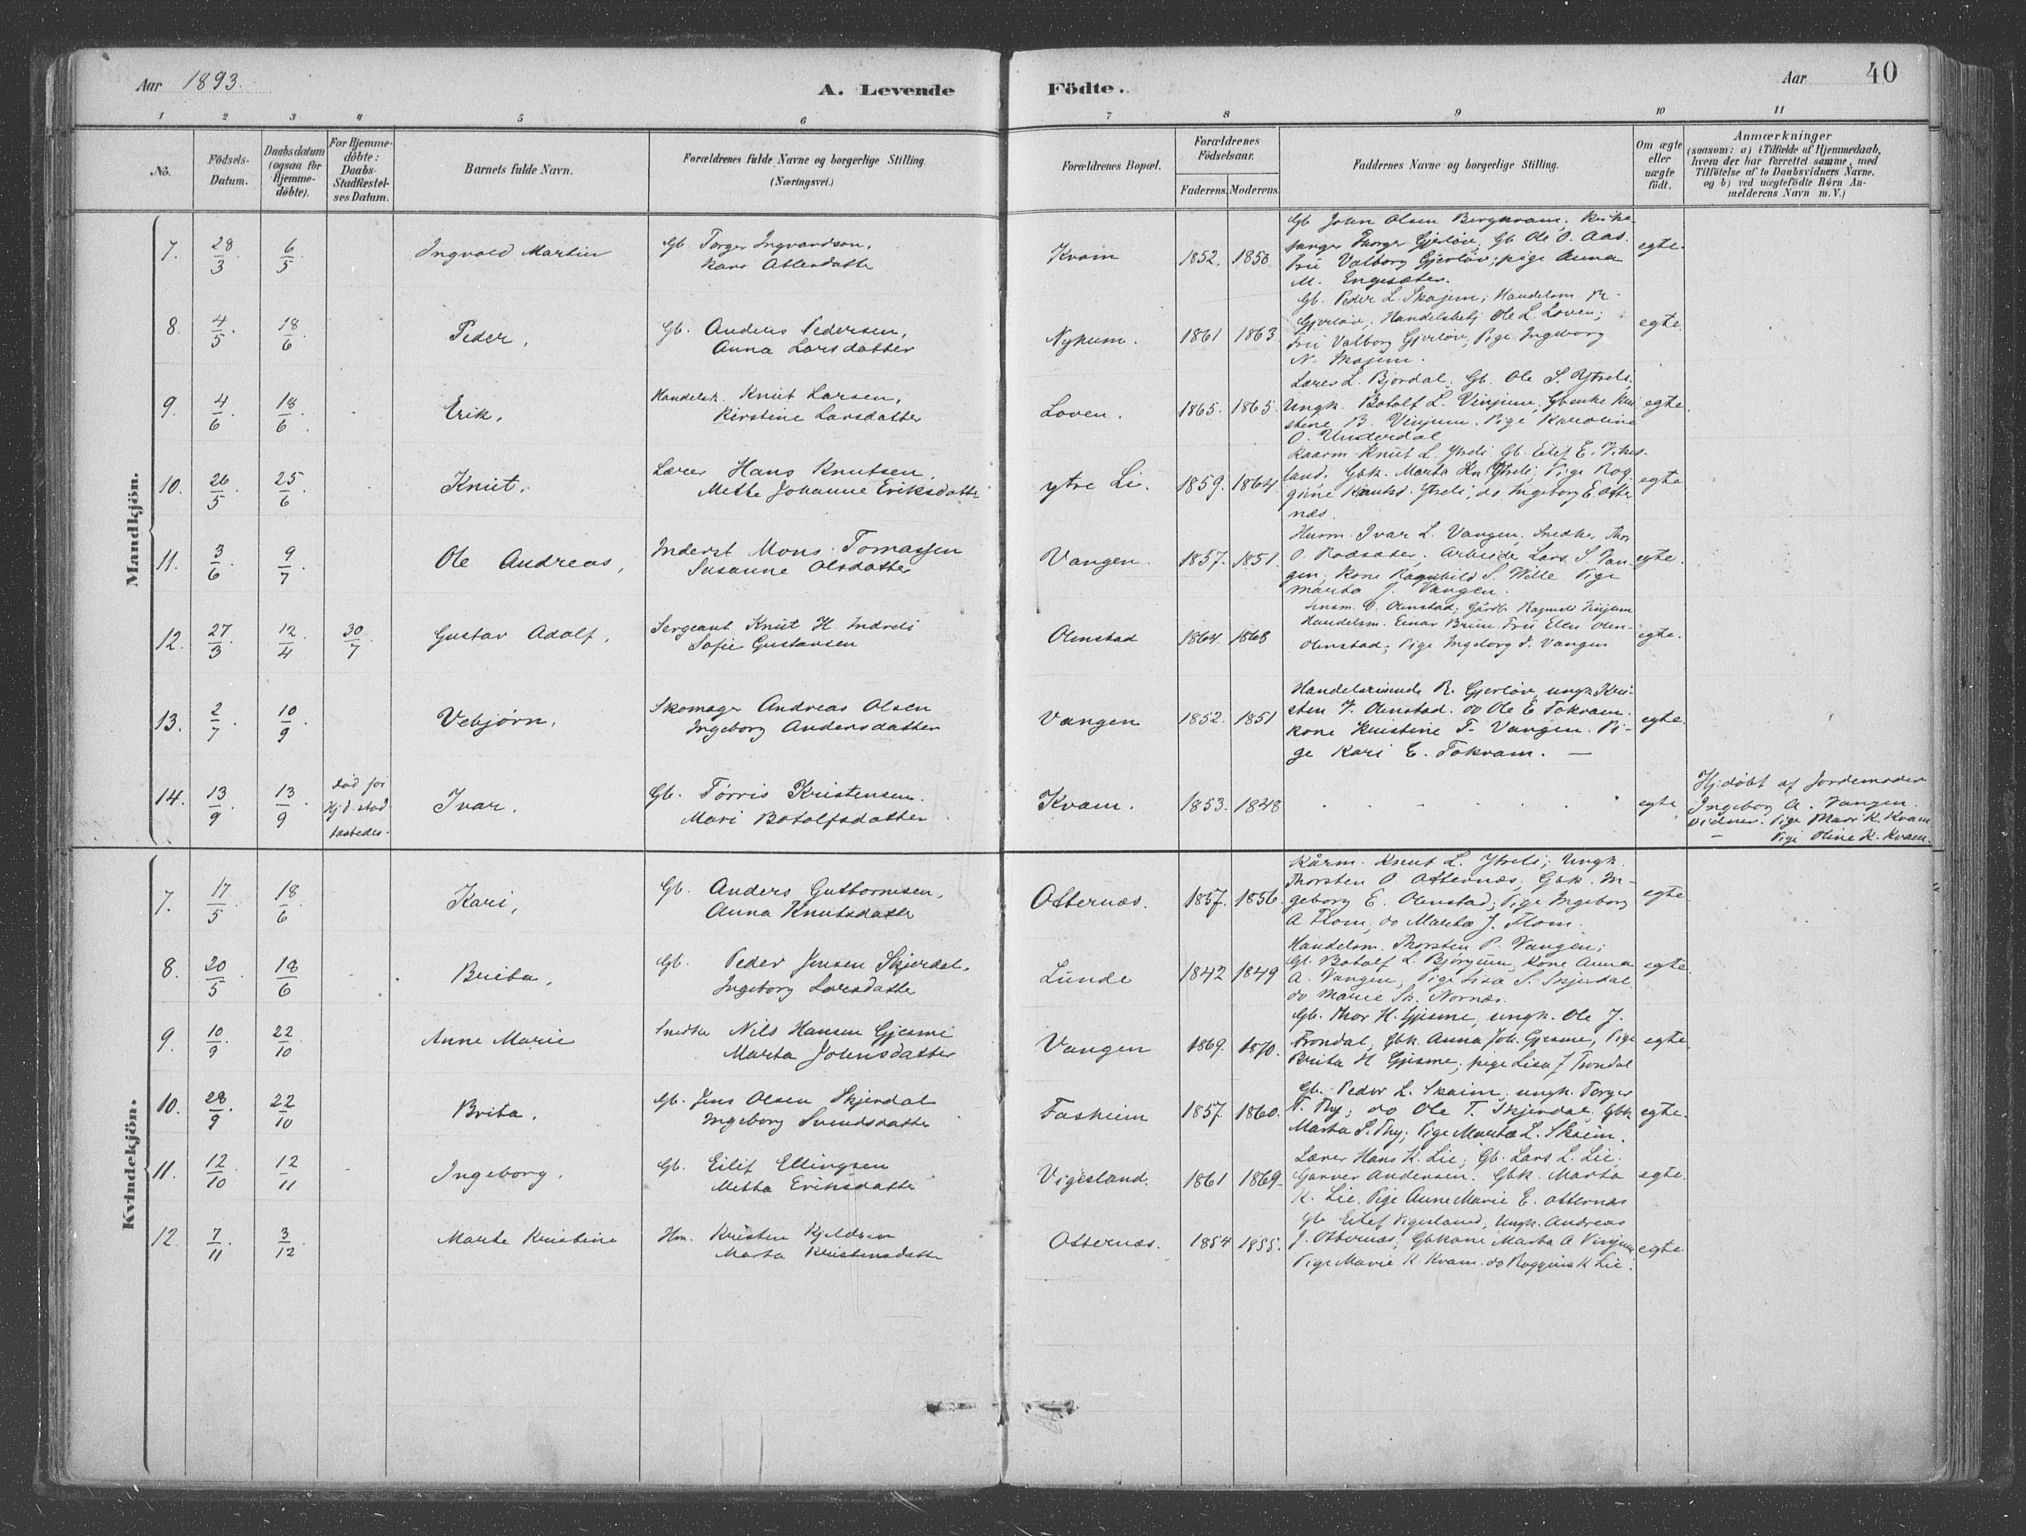 Aar 1893.
A. Levende Födte.
Aar 40
1 2 3 4 5 6 7 8 9 10 11
No.
Födsels-Datum.
Daabsdatum (ogsaa for Hjemme-döbte).
For Hjemme-döbte: Daabs-Stadfæstel-ses Datum.
Barnets fulde Navn.
Forældrenes fulde Navne og borgerlige Stilling. (Næringsvei.)
Forældrenes Bopæl.
Forældrenes Födselsaar.
Faderens. Moderens.
Faddernes Navne og borgerlige Stilling.
Om ægte eller uægte födt.
Anmærkninger
(saasom: a) i Tilfælde af Hjemmedaab, hvem der har forrettet samme, med Tilföielse af to Daabsvidners Navne, og b) ved uægtefödte Børn Anmelderens Navn m. V.)
Mandkjön.
7. 28/3 6/5 Ingvald Martin
Gb. Torger Ingvardson,
Kari Ottersdatter
Kvam 1852. 1850
Gb John Olsen Bergkvam,
Gjerløv, Gb. Ole O. Aas.
Fru Valborg Gjerløv; pige Anna
M. Engesæter.
egte.
8. 4/5 18/6 Peder,
Gb. Anders Pedersen,
Anna Larsdatter
Nykum. 1861 1863
Gb. Peder L. Skajem; Handelsm. R.
Gjerløv, Handelsbetj Ole L. Loven;
Fru Valborg Gjerløv, Pige Ingeborg
N. Skajem.
egte.
9. 4/6 18/6 Erik,
Handelsk. Knut Larsen,
Kirstine Larsdatter
Loven. 1865. 1865.
Lærer L. Bjordal; Gb. Ole S. Ytreli,
Ungk. Botolf L. Vinjum, Gbenke Kri-
stine B. Vinjum. Pige Karoline
O. Underdal
egte.
10. 26/5 25/6 Knut,
Lærer Hans Knutsen,
Mette Johanne Eriksdatter
ytre Li. 1859. 1864
Kaarm Knut L. Ytreli Gb. Eilef E. Vikes-
land, Gbk. Marta Kn Ytreli; Pige Rag-
gine Knutsd. Ytreli, do Ingeborg E. Otter
næs.
egte
11. 3/6 9/7 Ole Andreas,
Inderst Mons Tomassen
Susanne Olsdatter
Vangen. 1857. 1851.
Husm. Ivar L. Vangen, Snedke. Thor
O. Rodsæter, Arbeide Lars S. Van-
gen; Kone Ragnhild S. Wille Pige
Marta J. Vangen.
egte.
12. 27/3 12/4 30/7 Gustav Adolf,
Sergeant Knut H. Indreli
Sofie Gustavsen
Olmstad 1864. 1868
Lensm. O. Olmstad; Gårdb. Ragnvald Vinjum
Handelsm. Einar Brun Fru Ellen Olm-
Olmstad; Pige Ingeborg J. Vangen
egte.
13. 2/7 10/9 Vebjørn,
Skomager Andreas Olsen
Ingeborg Andersdatter
Vangen 1852. 1851
Handelsreisende R. Gjerløv, ungk Kri-
sten J. Olmstad. do Ole E Tokvam.
Kone Kristine T. Vangen. Pi-
ge Kari E. Tokvam. —
egte.
14. 13/9 13/9
død før
Hjd. stad
fæstedes.
Ivar,
Gb. Tørris Kristensen.
Mari Botolfsdatter
Kvam. 1853. 1848
egte
Hj.døbt af Jordemoder
Ingeborg A. Vangen.
Vidner. Pige Mari K. Kvam
— Pige Oline K. Kvam.
Kvindekjön.
7. 17/5 18/6 Kari,
Gb. Anders Guttormsen,
Anna Knutsdatter
Otternæs. 1857. 1856
Kårm. Knut L. Ytreli; Ungk.
Thorsten O Otternæs, Gbk. In-
geborg E. Olmstad; Pige Ingeborg
A Flom, do Marta J. Flom.
egte
8. 20/5 18/6 Brita,
Gb. Peder Jensen Skjerdal,
Ingeborg Larsdatter
Lunde 1842 1849
Handelsm. Thorsten P. Vangen;
Gb. Botolf L Bjørgum, Kone Anna
A. Vangen, Pige Lisa S. Skjerdal
do Marie Sk. Nornæs.
egte
9. 10/9 22/10 Anne Marie
Snedke Nils Hansen Gjesme
Marta Johnsdatter
Vangen 1869. 1870.
Gb. Thor H. Gjesme, ungk. Ole J.
Trondal; Gbk. Anna Joh. Gjesme, Pige
Brita H Gjesme; pige Lisa J Trondal
egte.
10. 28/9 22/10 Brita.
Gb. Jens Olsen Skjerdal
Ingeborg Svendsdatter
Fasheim 1857. 1860.
Gb. Peder L. Skaim, ungk. Torger
T. Thy; do Ole T. Skjerdal. Gbk
Marta S. Thy; Pige Marta L. Skaim.
egte.
11. 12/10 12/11 Ingeborg.
Gb. Eilif Ellingsen
Metta Eriksdatter
Vigesland. 1861 1869.
Lærer Hans K. Lie; Gb. Lars L. Lie;
Garver Andersen. Gbk. Marta
K. Lie. Pige Anne Marie E. Otternæs
egte.
12 7/11 3/12 Marte Kristine
Hm. Kristen Kjeldsen
Marta Kristensdatter
Otternæs. 1854 1855.
Gb Eilef Vigesland, Ungk. Andreas
J. Otternæs; Gbkone Marta A Vinjum
Pige Marie K. Kvam. do Raggina K Lie.
egte.